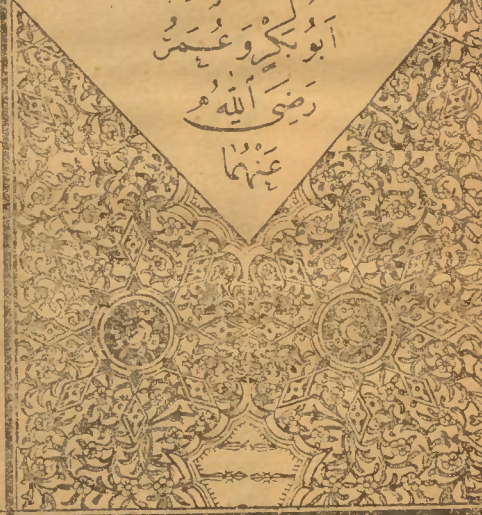 أَبُو بَكْرٍ وَعُمَرُ
رَضِيَ ٱللّٰهُ
عَنْهُمَا